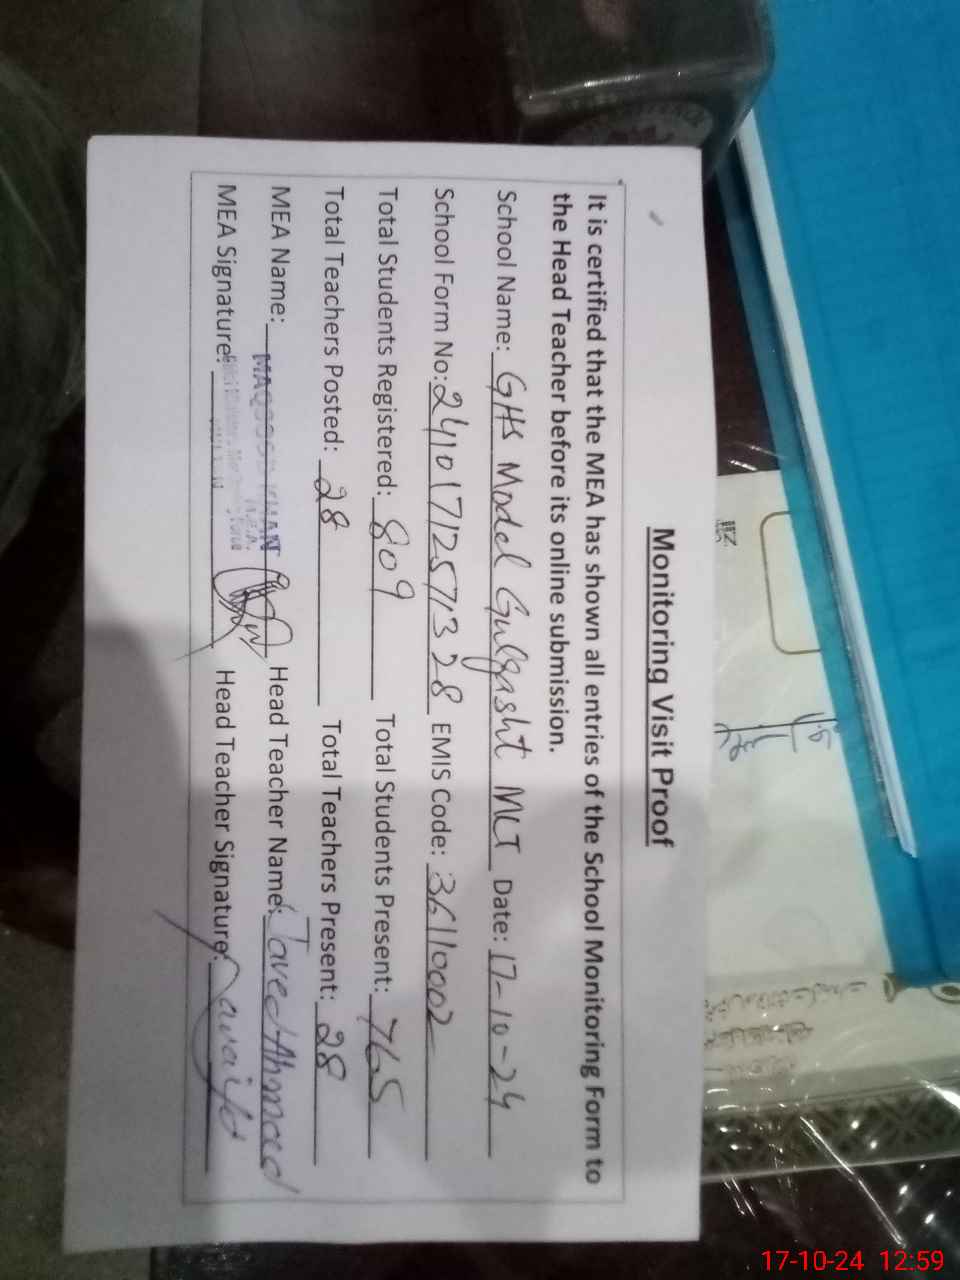 Monitoring Visit Proof
It is certified that the MEA has shown all entries of the School Monitoring Form to
the Head Teacher before its online submission.
School Name: GHS Model Gulgasht MLT Date: 17-10-24
School Form No: 2410171257328 EMIS Code: 36110002
Total Students Registered: 809 Total Students Present: 765
Total Teachers Posted: 28 Total Teachers Present: 28
MEA Name: MAQSOOD KHAN Head Teacher Name: Javed Ahmad
M.E.A.
MEA Signature: Head Teacher Signature:
17-10-24 12:59